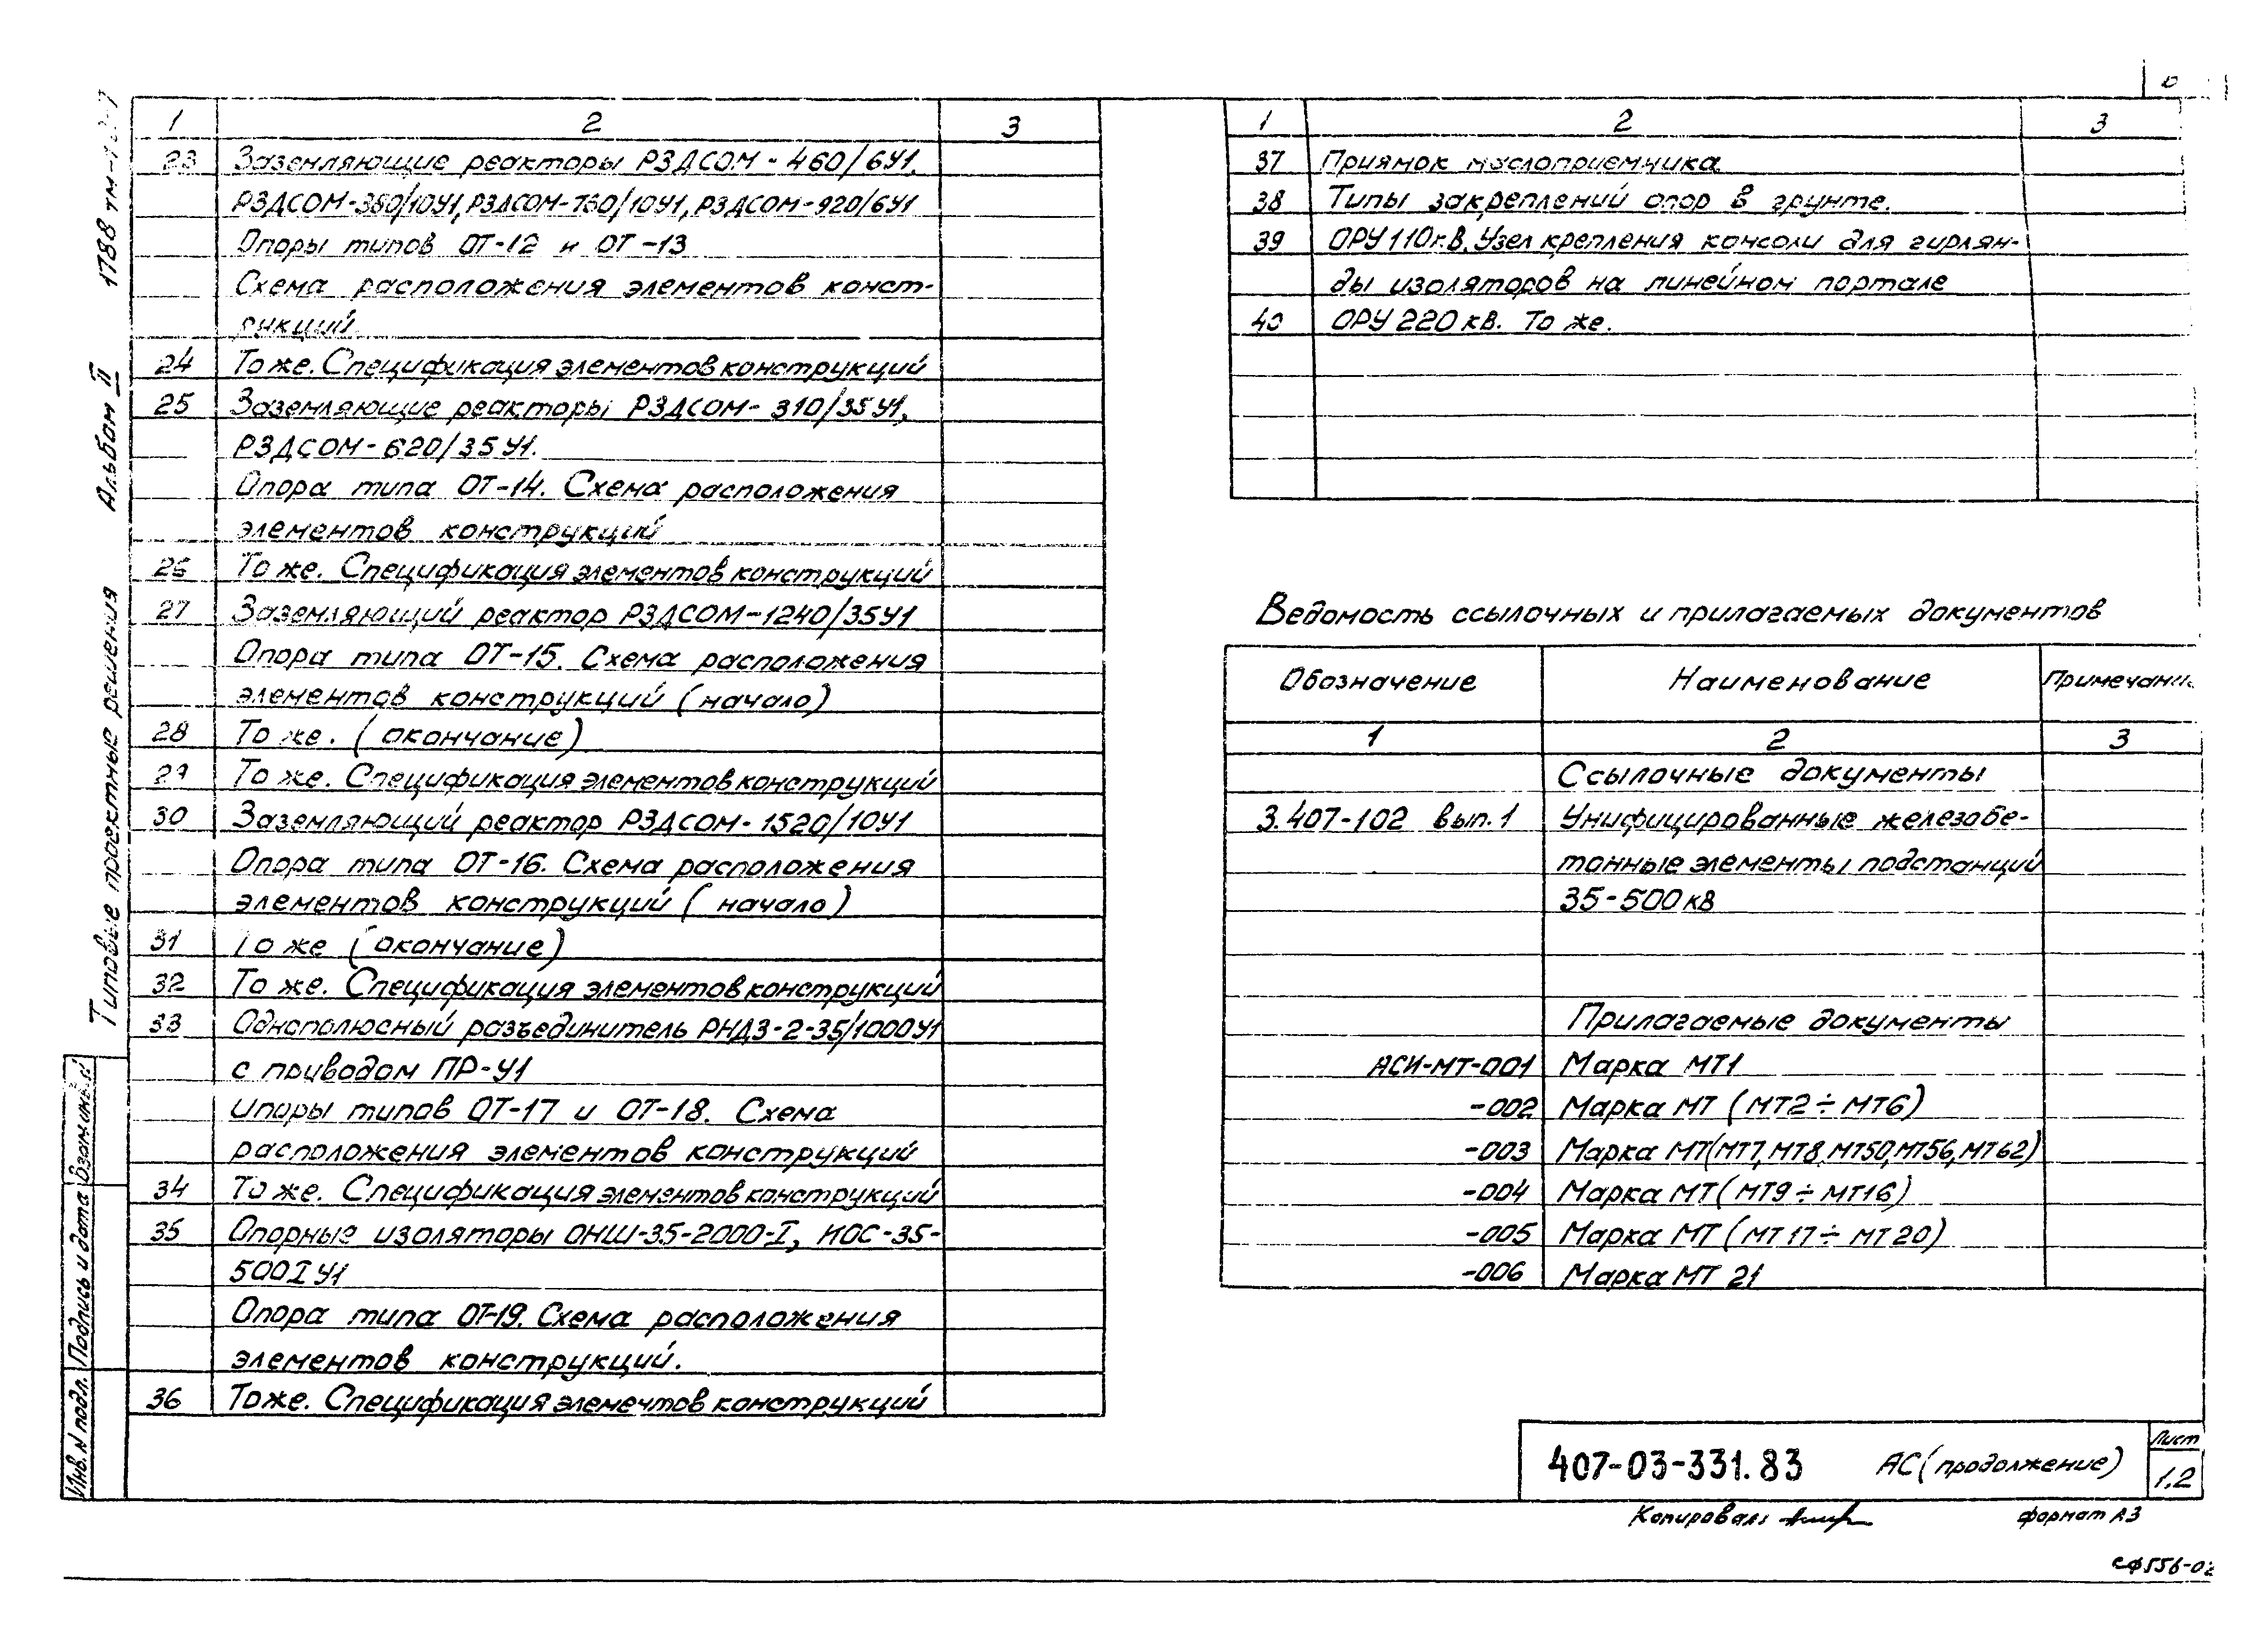 1 2 3
23 Заземляющие реакторы РЗДСОМ-460/6У1,
РЗДСОМ-380/10У1, РЗДСОМ-760/10У1, РЗДСОМ-920/6У1
Опоры типов ОТ-12 и ОТ-13
Схема расположения элементов конст-
рукций.
24 То же. Спецификация элементов конструкций
25 Заземляющие реакторы РЗДСОМ-310/35У1,
РЗДСОМ-620/35У1.
Опора типа ОТ-14. Схема расположения
элементов конструкций
26 То же. Спецификация элементов конструкций
27 Заземляющий реактор РЗДСОМ-1240/35У1
Опора типа ОТ-15. Схема расположения
элементов конструкций (начало)
28 То же. (окончание)
29 То же. Спецификация элементов конструкций
30 Заземляющий реактор РЗДСОМ-1520/10У1
Опора типа ОТ-16. Схема расположения
элементов конструкций (начало)
31 То же (окончание)
32 То же. Спецификация элементов конструкций
33 Однополюсный разъединитель РНДЗ-2-35/1000У1
с приводом ПР-У1
Опоры типов ОТ-17 и ОТ-18. Схема
расположения элементов конструкций
34 То же. Спецификация элементов конструкций
35 Опорные изоляторы ОНШ-35-2000-I, ИОС-35-
500I У1
Опора типа ОТ-19. Схема расположения
элементов конструкций.
36 То же. Спецификация элементов конструкций
1 2 3
37 Приямок маслоприемника
38 Типы закреплений опор в грунте.
39 ОРУ 110кВ. Узел крепления консоли для гирлян-
ды изоляторов на линейном портале
40 ОРУ 220 кВ. То же.
Ведомость ссылочных и прилагаемых документов
Обозначение Наименование Примечание
1 2 3
Ссылочные документы
3.407-102 вып.1 Унифицированные железобе-
тонные элементы подстанций
35-500 кВ
Прилагаемые документы
АСИ-МТ-001 Марка МТ1
-002 Марка МТ (МТ2 ÷ МТ6)
-003 Марка МТ (МТ7, МТ8, МТ50, МТ56, МТ62)
-004 Марка МТ (МТ9 ÷ МТ16)
-005 Марка МТ (МТ17 ÷ МТ20)
-006 Марка МТ 21
407-03-331.83 АС (продолжение) Лист
1.2
Копировал: формат А3
СФ556-02
Типовые проектные решения Альбом II 1788 тм
Инв. N подл. Подпись и дата Взам инв. N